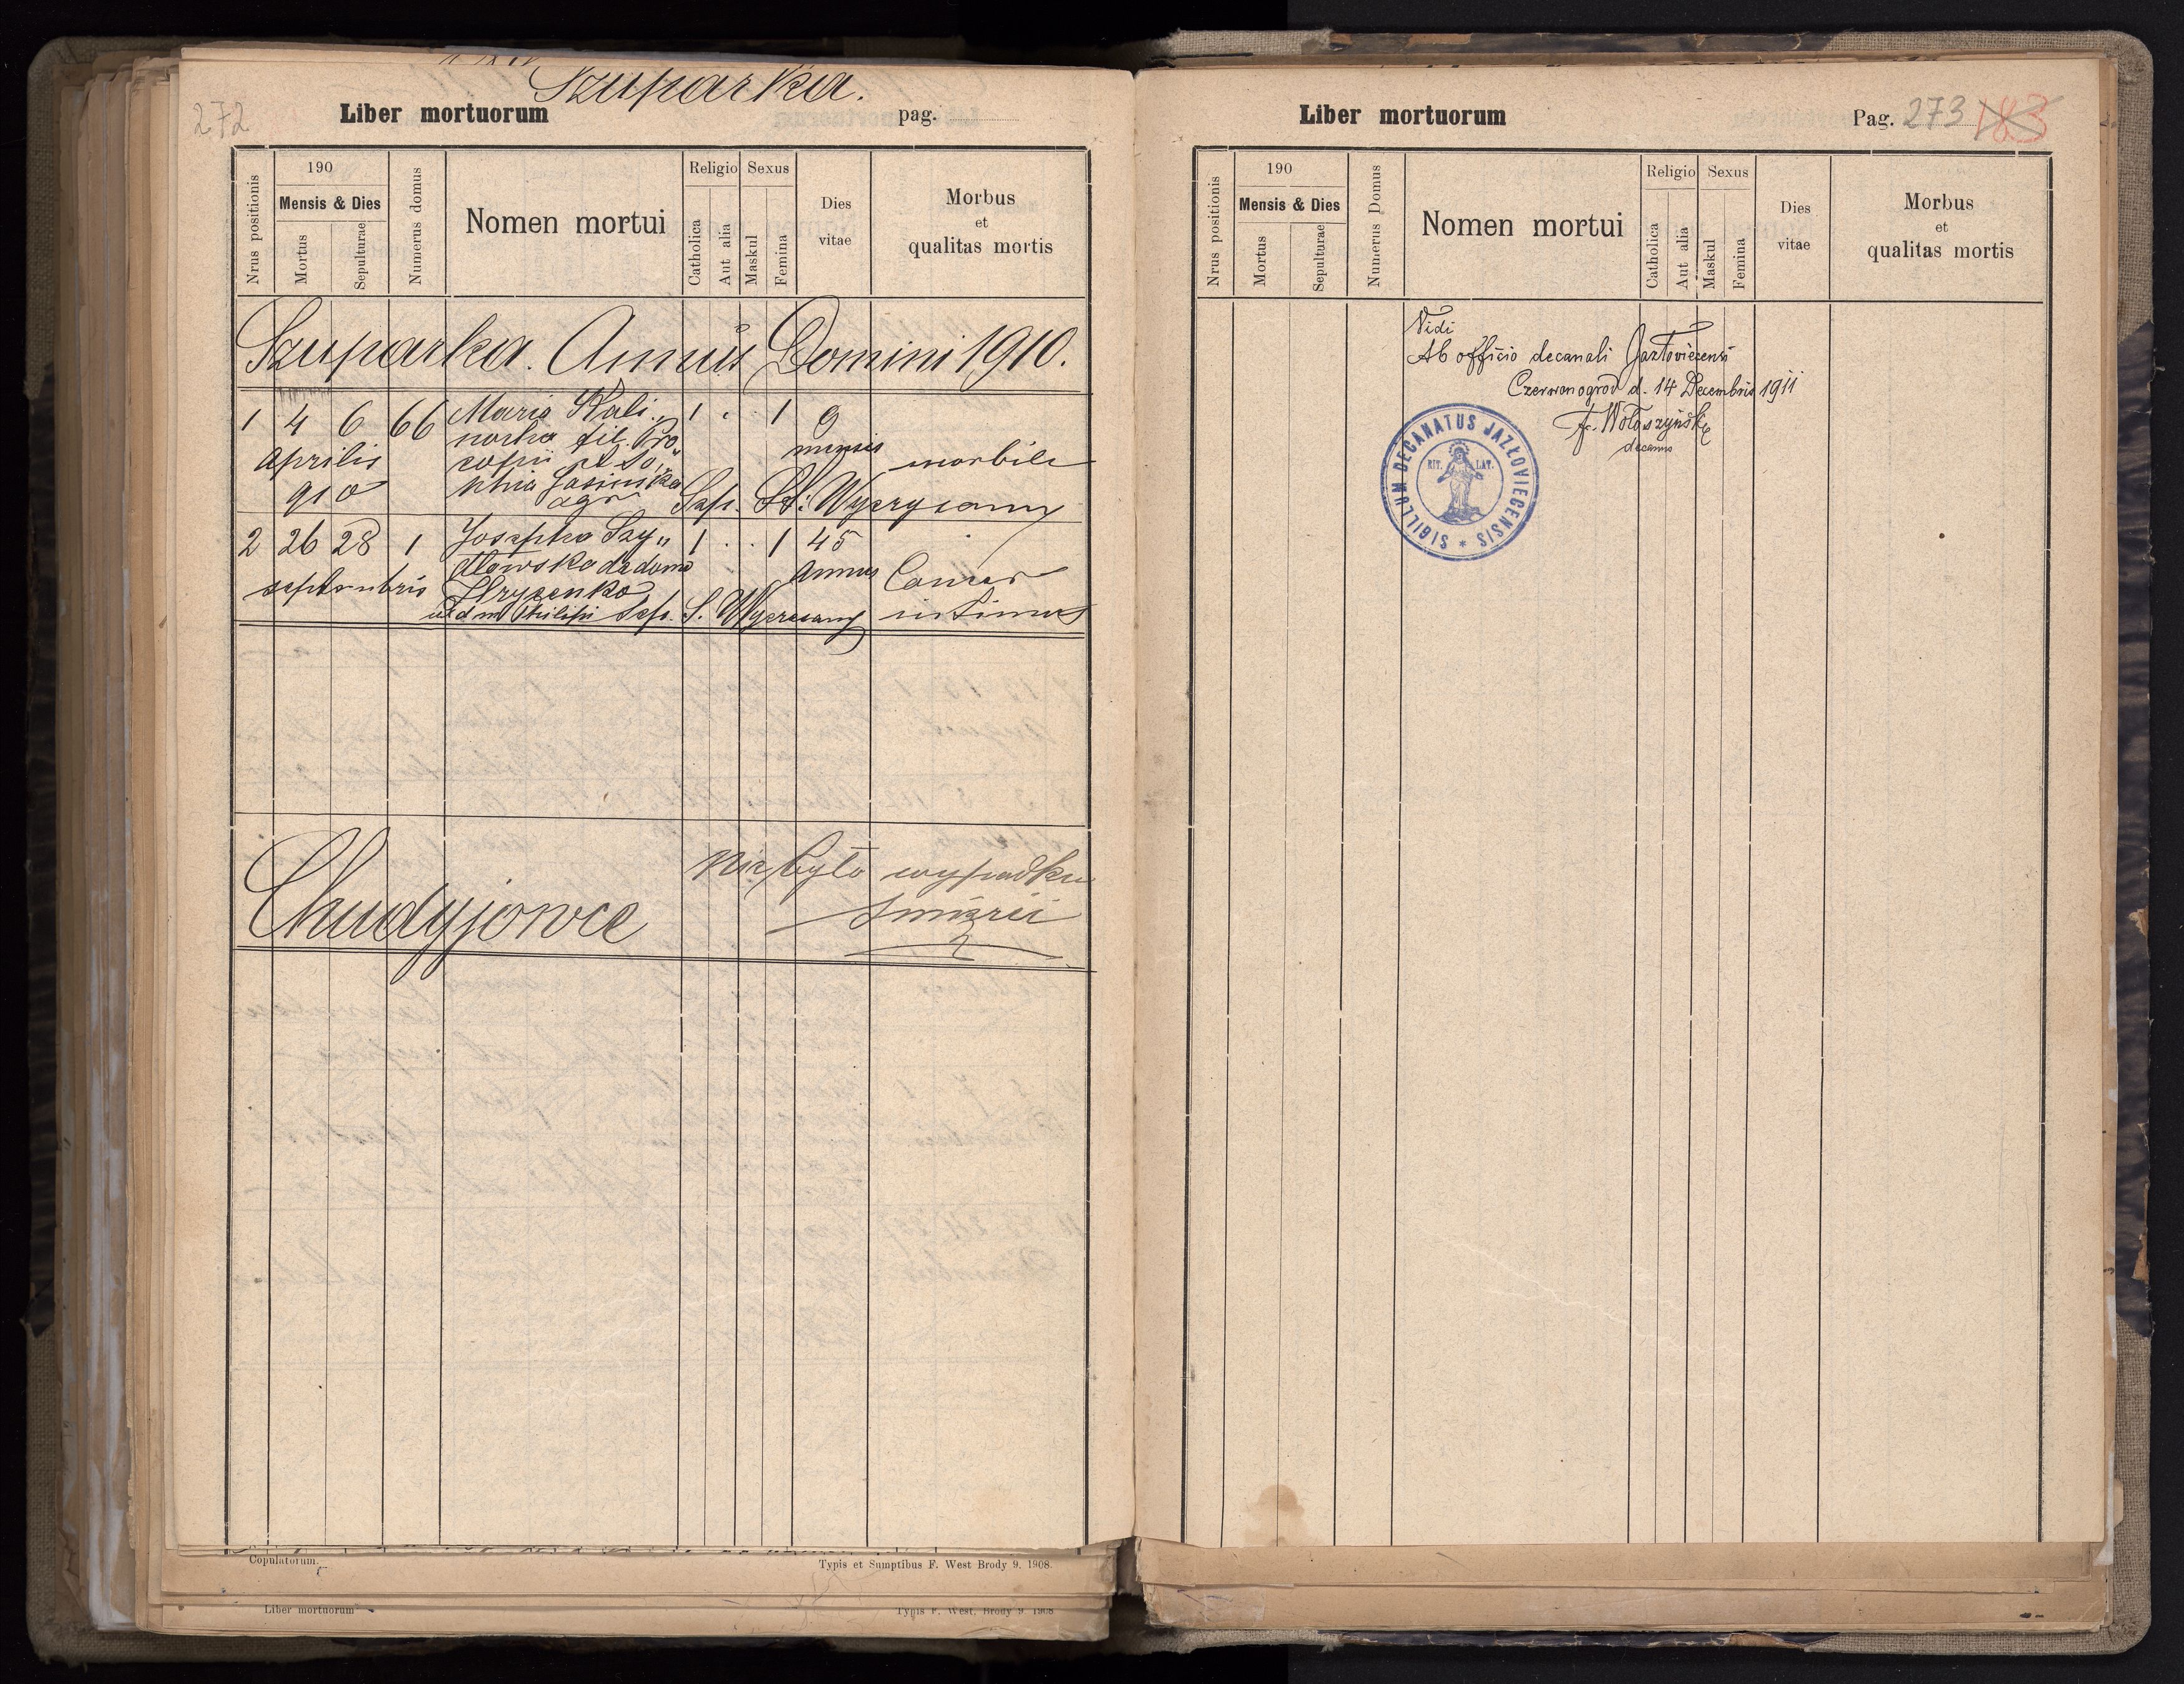 272
Szuparka.
Liber mortuorum
pag.
Nrus positionis
190
Mensis & Dies
Mortus
Sepulturae
Numerus domus
Nomen mortui
Religio
Catholica
Aut alia
Sexus
Maskul
Femina
Dies
vitae
Morbus
et
qualitas mortis
Szuparka. Annus Domini 1910.
1 4 6 66 Maria Kali„ 1 . . 1 9
norka fil. Pro„
Aprilis copii et So„ mensis morbili
910 phia Jasinska
agr Sep. St. Wyczesany
2 26 28 1 Josepha Szy„ 1 . . 1 45
dłowska de domo annus Cancer
septembris Hryzenko
Philipi Sep. S. Wyczesany intimus
Chudyjowce
Nie było wypadku
śmierci
Copulatorum.
Typis et Sumptibus F. West Brody 9. 1908.
Liber mortuorum
Typis F. West. Brody 9 1908
Liber mortuorum
Pag. 273 183
Nrus positionis
190
Mensis & Dies
Mortus
Sepulturae
Numerus Domus
Nomen mortui
Religio
Catholica
Aut alia
Sexus
Maskul
Femina
Dies
vitae
Morbus
et
qualitas mortis
Vidi
Ab officio decanali Jazłoviecensi
Czerwonogród d. 14 Decembris 1911
Fr. Wołoszyński
decanus
SIGILLUM DECANATUS JAZŁOVIECENSIS *
RIT. LAT.